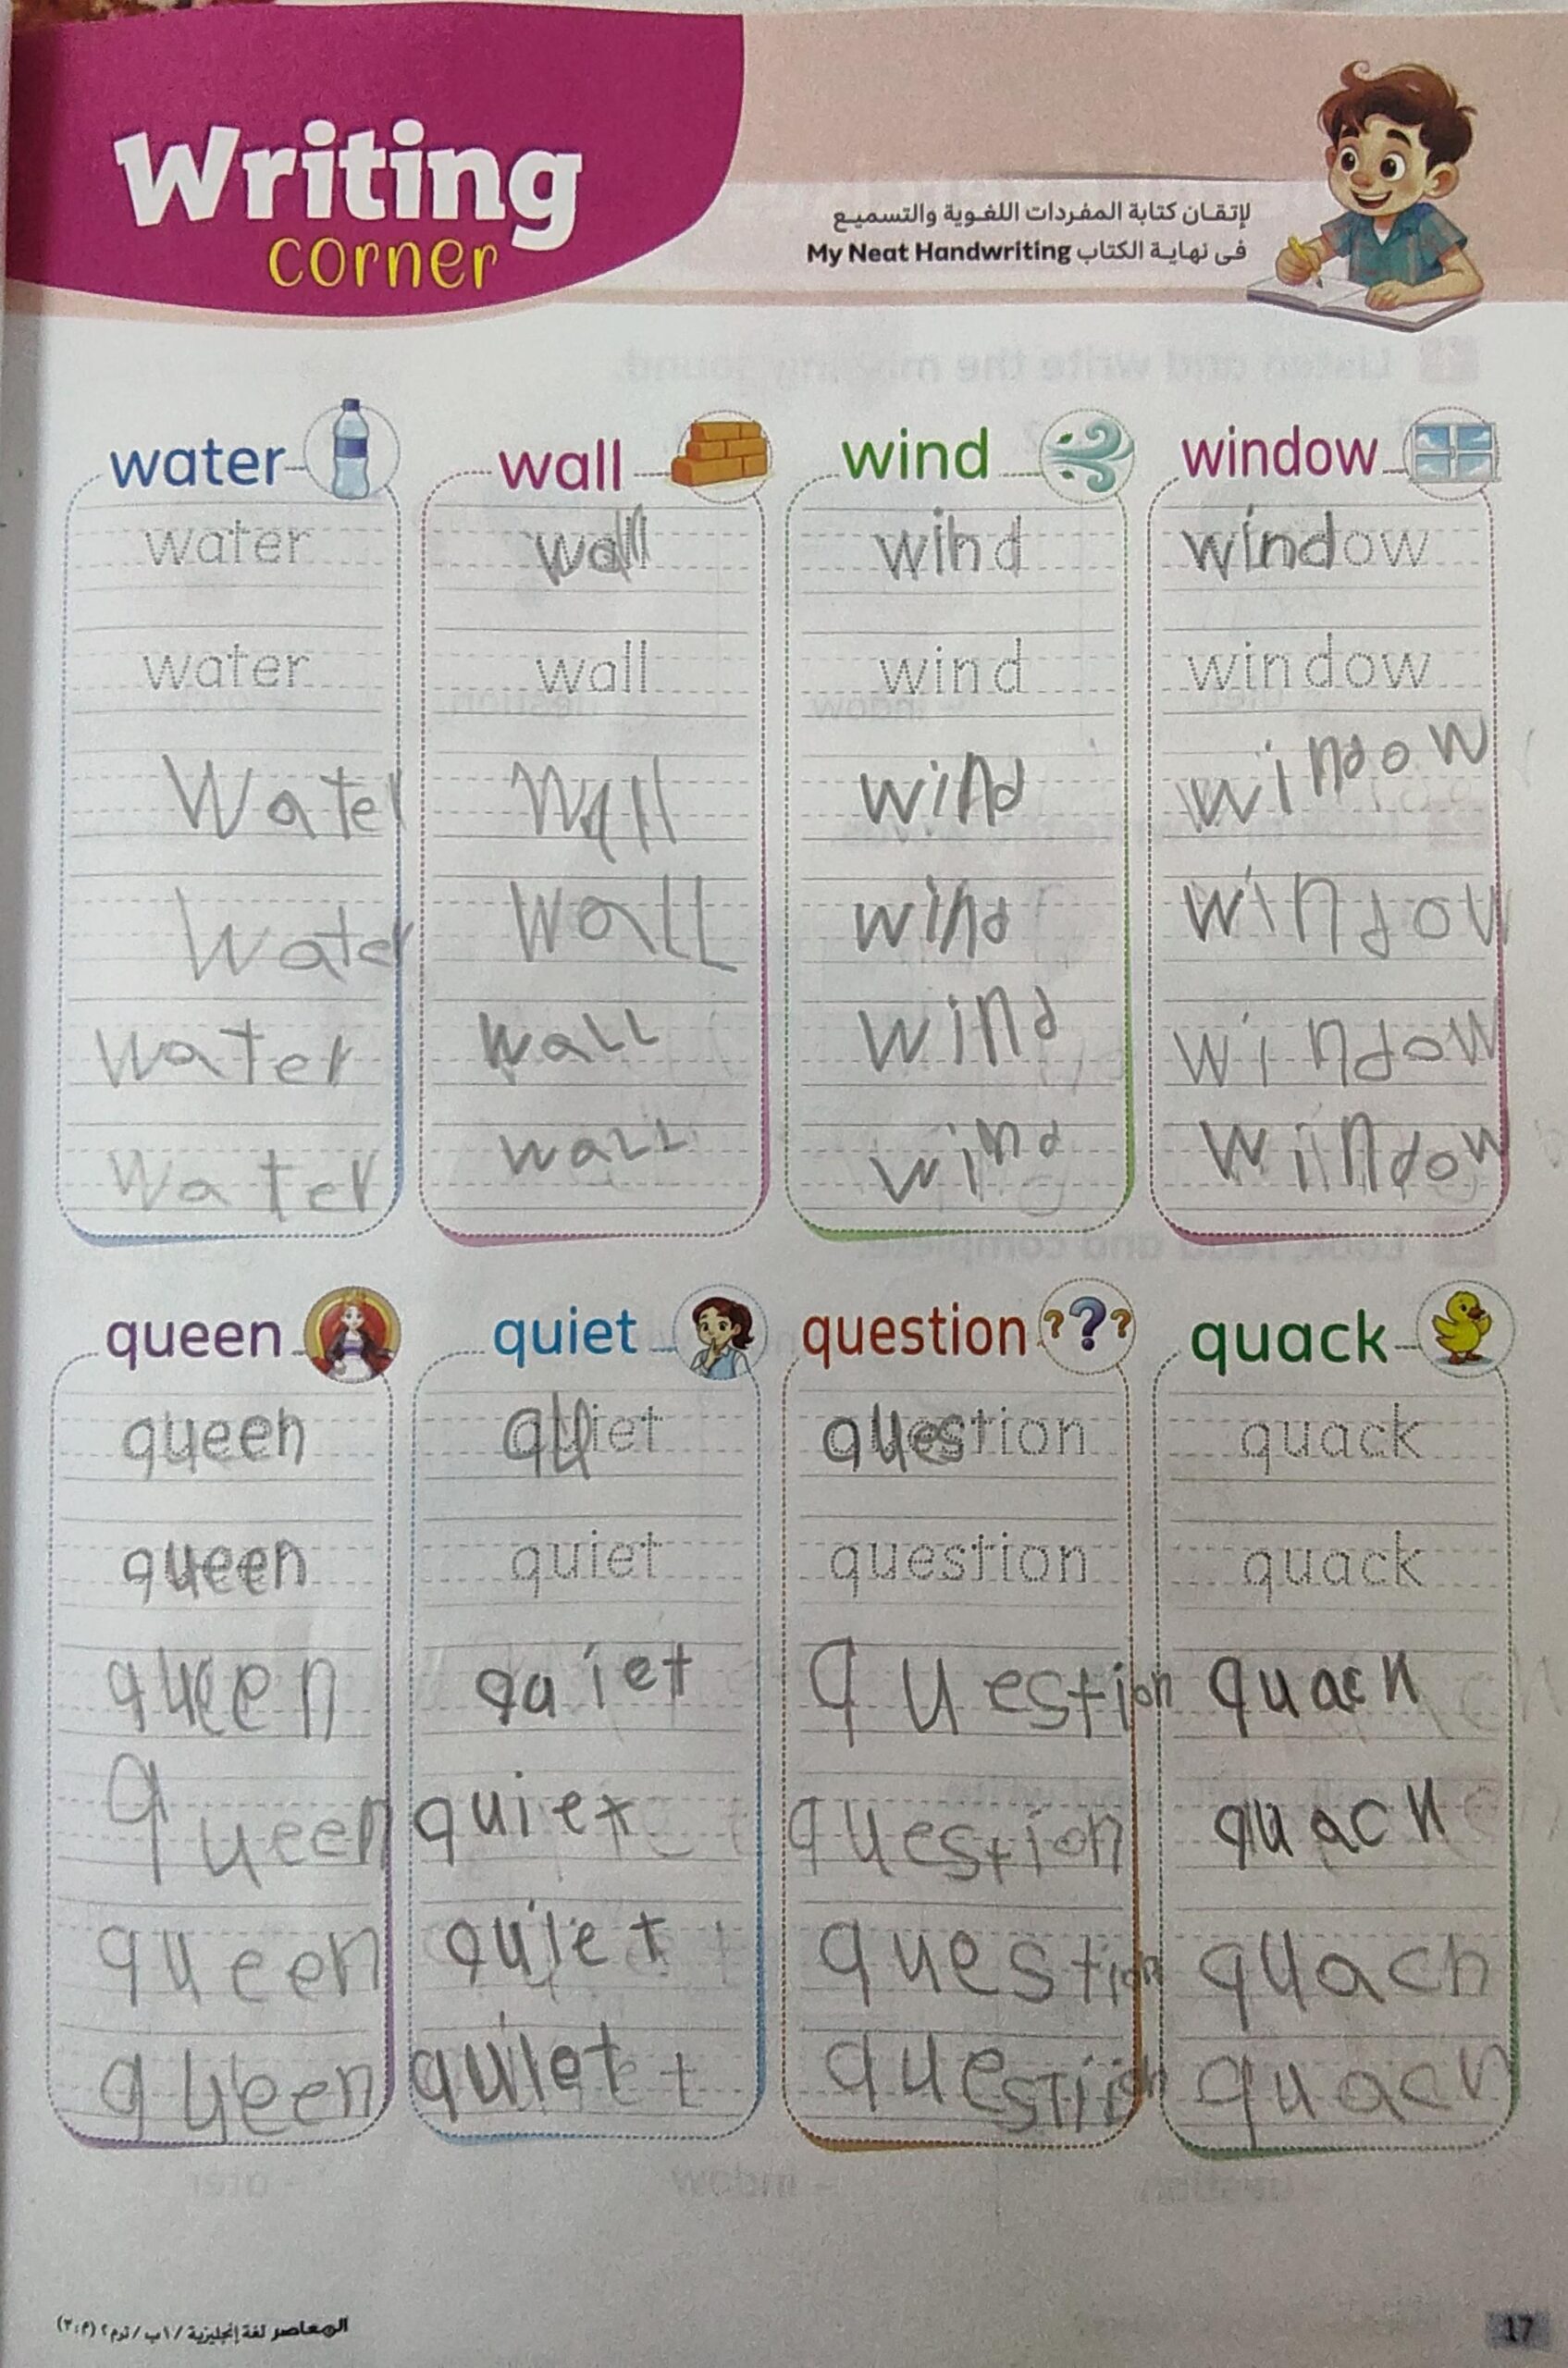 Writing
corner
لإتقـان كتابة المفردات اللغـوية والتسميـع
فى نهايـة الكتاب My Neat Handwriting
water wall wind window
water wall wind window
water wall wind window
Water Wall wind window
Water Wall wind window
water wall wind window
water wall wind window
queen quiet question quack
queen quiet question quack
queen quiet question quack
queen quiet question quacn
queen quiet question quacn
queen quiet question quach
queen quiet question quacn
المعاصر لغة إنجليزية / ١ب / ترم ٢ (م:٢)
17